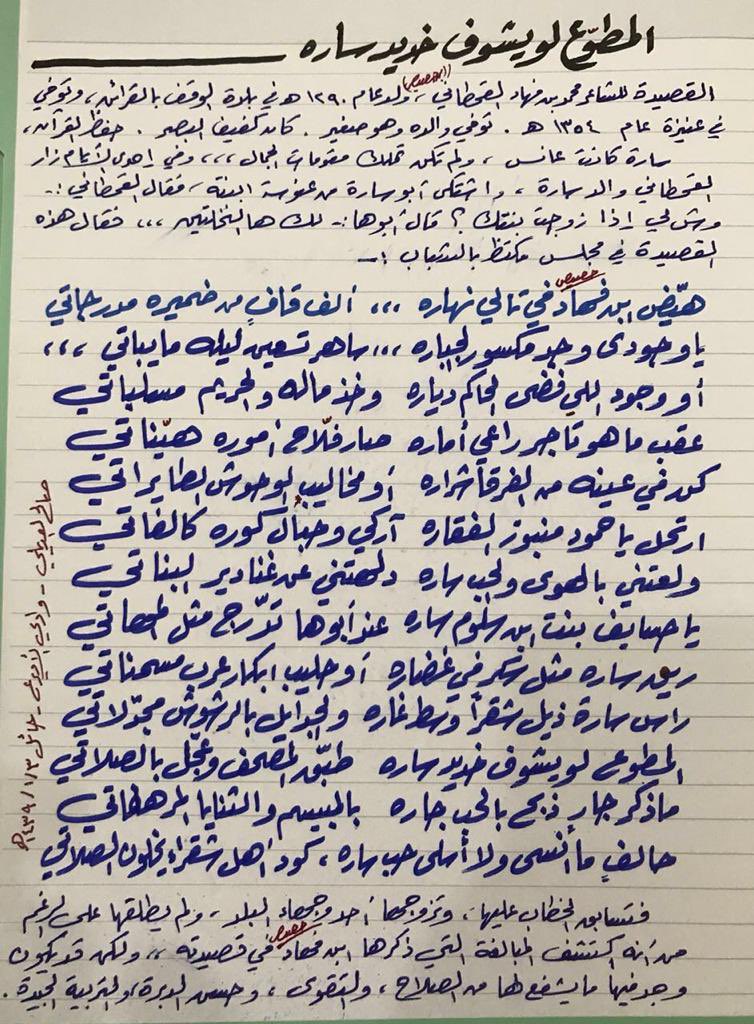 المطوّع لو يشوف خديد ساره
القصيدة للشاعر محمد بن فهاد القحطاني ((خصيص)) ، ولد عام ١٢٩٠ هـ في بلدة الوقف بالقرائن ، وتوفي
في عنيزة عام ١٣٥٤ هـ . توفي والده وهو صغير . كان كفيف البصر . حفظ القرآن ،
سارة كانت عانس ، ولم تكن تملك مقومات الجمال ،،، وفي إحدى الأيام زار
القحطاني والد سارة ، واشتكى أبو سارة من عنوسة ابنته ، فقال القحطاني :ـ
وش لي إذا زوجت بنتك ؟ قال أبوها :ـ لك هالنخلتين ،،، فقال هذه
القصيدة في مجلس مكتظ بالشباب :ـ
هيّض ابن فهاد خصيص في تالي نهاره ،،، ألف قافٍ من ضميره مدرجاتي
ياوجودي وجد مكسور الجباره ،،، ساهر تسعين ليله ما يباتي ،،،
أو وجود اللي فضى الحاكم دياره وخذ ماله والحريم مسلباتي
عقب ما هو تاجر راعي أماره صار فلّاح أموره هيّناتي
كن في عينه من الفرقا شراره أو مخاليب الوحوش الطايراتي
ارتحل يا حمود منبوز الفقاره آركي وحبال كوره كالفاتي
ولعتني بالهوى ولحب ساره ولهتني عن غنادير البناتي
يا حسايف بنت ابن سلوم ساره عند أبوها تدّرج مثل المهاتي
ريق ساره مثل سكر في غضاره أو حليب ابكار عرب مسمناتي
راس سارة ذيل شقرا وسط غاره والجدايل بالرشوش مجوّلاتي
المطوع لو يشوف خديد ساره طبّق المصحف وعجّل بالصلاتي
ما ذكر جارٍ ذبح بالحب جاره بالمبيسم والثنايا المرهفاتي
حالفٍ ما أنسى ولا أسلى حب ساره ، كود أهل شقراء يخلون الصلاتي
فتسابق الخطاب عليها ، وتزوجها أحد وجهاء البلد ، ولم يطلقها على الرغم
من أنه اكتشف المبالغة التي ذكرها ابن فهاد خصيص في قصيدته ،، ولكن قد يكون
وجد فيها ما يشفع لها من الصلاح ، والتقوى ، وحسن الدبرة ، والتربية الجيدة .
صالح - وادي - حائل ١٤٣٩/١/٣هـ